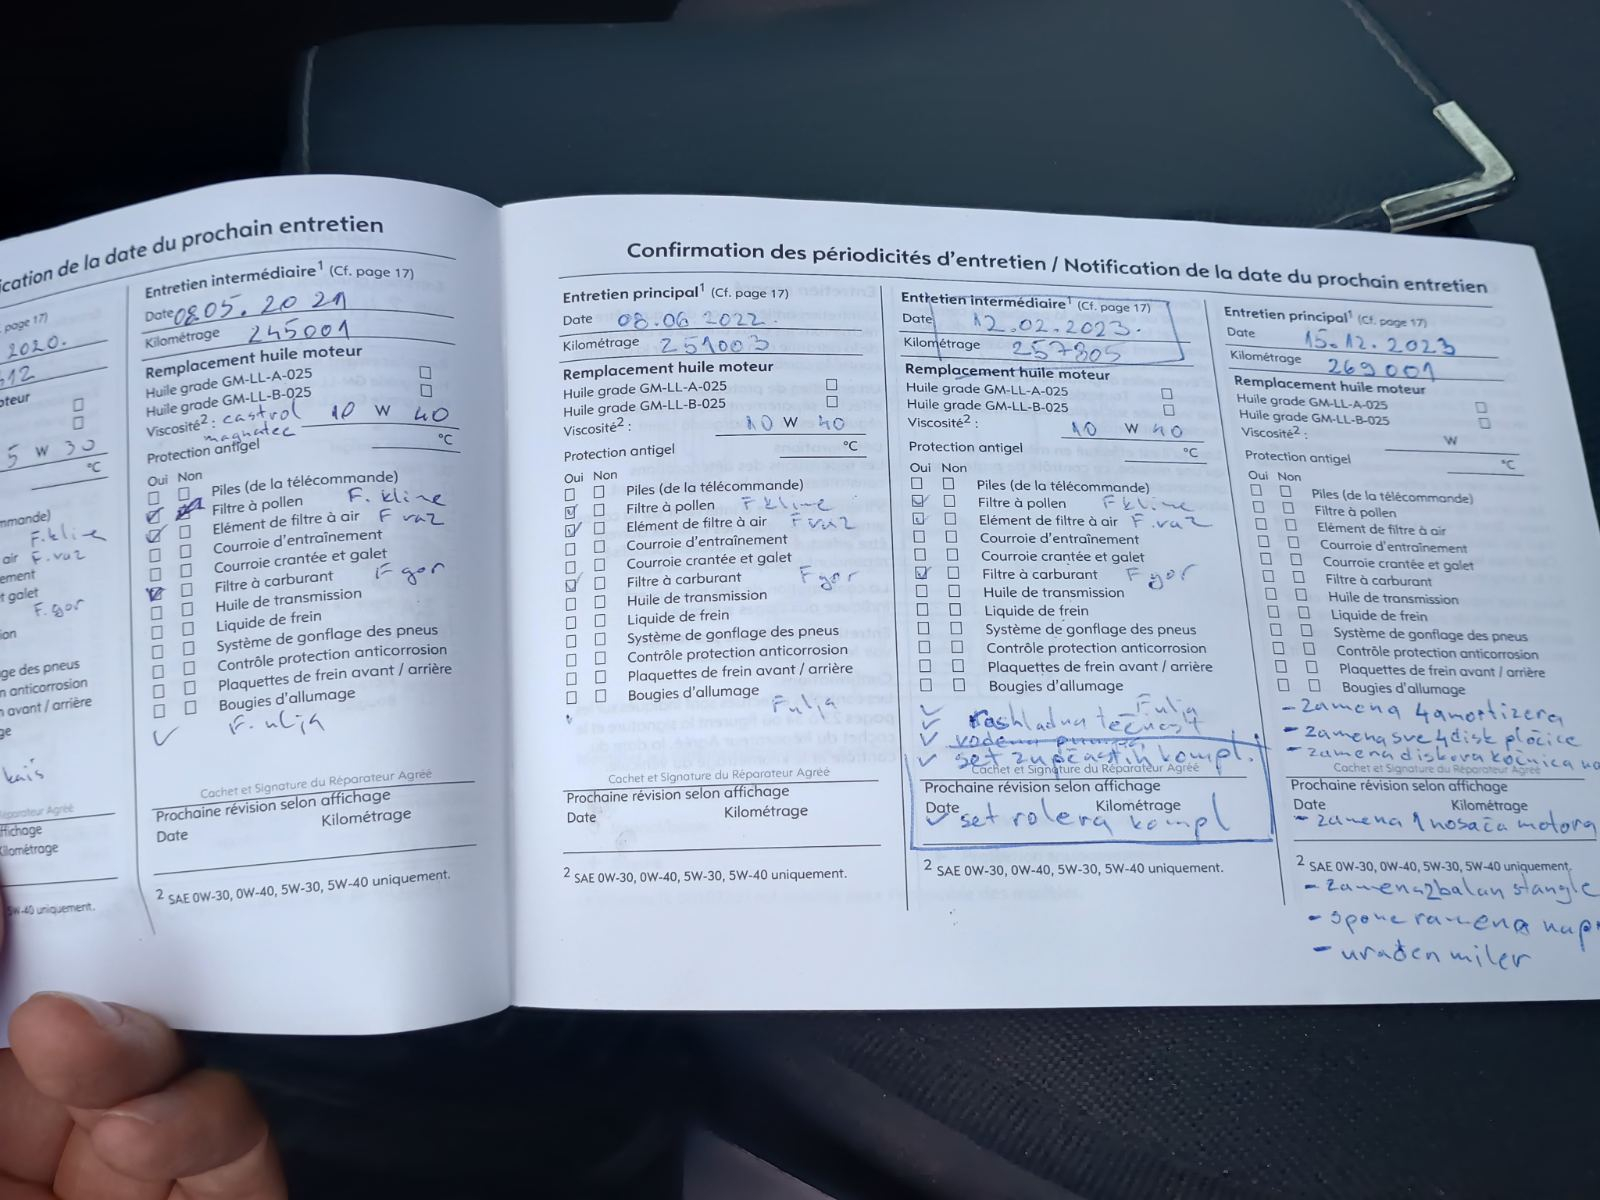 ication de la date du prochain entretien
page 17)
2020.
12
oteur
5 W 30
°C
mmande)
F.kline
air F.vaz
ement
t galet
F.gor
ion
ge des pneus
n anticorrosion
avant / arrière
ge
Réparateur Agréé
ffichage
Kilométrage
5W-40 uniquement.
Entretien intermédiaire¹ (Cf. page 17)
Date 08.05.2021
Kilométrage 245001
Remplacement huile moteur
Huile grade GM-LL-A-025
Huile grade GM-LL-B-025
Viscosité² : castrol 10 W 40
magnatec
Protection antigel °C
Oui Non
Piles (de la télécommande)
Filtre à pollen F. kline
Elément de filtre à air F vaz
Courroie d'entraînement
Courroie crantée et galet
Filtre à carburant F gor
Huile de transmission
Liquide de frein
Système de gonflage des pneus
Contrôle protection anticorrosion
Plaquettes de frein avant / arrière
Bougies d'allumage
F. ulja
Cachet et Signature du Réparateur Agréé
Prochaine révision selon affichage
Date Kilométrage
² SAE 0W-30, 0W-40, 5W-30, 5W-40 uniquement.
Confirmation des périodicités d'entretien / Notification de la date du prochain entretien
Entretien principal¹ (Cf. page 17)
Date 08.06 2022.
Kilométrage 251003
Remplacement huile moteur
Huile grade GM-LL-A-025
Huile grade GM-LL-B-025
Viscosité² : 10 W 40
Protection antigel °C
Oui Non
Piles (de la télécommande)
Filtre à pollen F kline
Elément de filtre à air F vaz
Courroie d'entraînement
Courroie crantée et galet
Filtre à carburant F gor
Huile de transmission
Liquide de frein
Système de gonflage des pneus
Contrôle protection anticorrosion
Plaquettes de frein avant / arrière
Bougies d'allumage
F ulja
Cachet et Signature du Réparateur Agréé
Prochaine révision selon affichage
Date Kilométrage
² SAE 0W-30, 0W-40, 5W-30, 5W-40 uniquement.
Entretien intermédiaire¹ (Cf. page 17)
Date 12.02.2023.
Kilométrage 257805
Remplacement huile moteur
Huile grade GM-LL-A-025
Huile grade GM-LL-B-025
Viscosité² : 10 W 40
Protection antigel °C
Oui Non
Piles (de la télécommande)
Filtre à pollen F kline
Elément de filtre à air F.vaz
Courroie d'entraînement
Courroie crantée et galet
Filtre à carburant F gor
Huile de transmission
Liquide de frein
Système de gonflage des pneus
Contrôle protection anticorrosion
Plaquettes de frein avant / arrière
Bougies d'allumage
F ulja
rashladna tečnost
vodena pumpa
set zupčastih kompl.
Cachet et Signature du Réparateur Agréé
Prochaine révision selon affichage
Date Kilométrage
set rolera kompl
² SAE 0W-30, 0W-40, 5W-30, 5W-40 uniquement.
Entretien principal¹ (Cf. page 17)
Date 15.12.2023
Kilométrage 269001
Remplacement huile moteur
Huile grade GM-LL-A-025
Huile grade GM-LL-B-025
Viscosité² : W
Protection antigel °C
Oui Non
Piles (de la télécommande)
Filtre à pollen
Elément de filtre à air
Courroie d'entraînement
Courroie crantée et galet
Filtre à carburant
Huile de transmission
Liquide de frein
Système de gonflage des pneus
Contrôle protection anticorrosion
Plaquettes de frein avant / arrière
Bougies d'allumage
- zamena 4 amortizera
- zamena sve 4 disk pločice
- zamena diskova kočnica na
Cachet et Signature du Réparateur Agréé
Prochaine révision selon affichage
Date Kilométrage
- zamena 1 nosača motora
² SAE 0W-30, 0W-40, 5W-30, 5W-40 uniquement.
- zamena 2 balan stangle
- spone ramena nap
- urađen miler